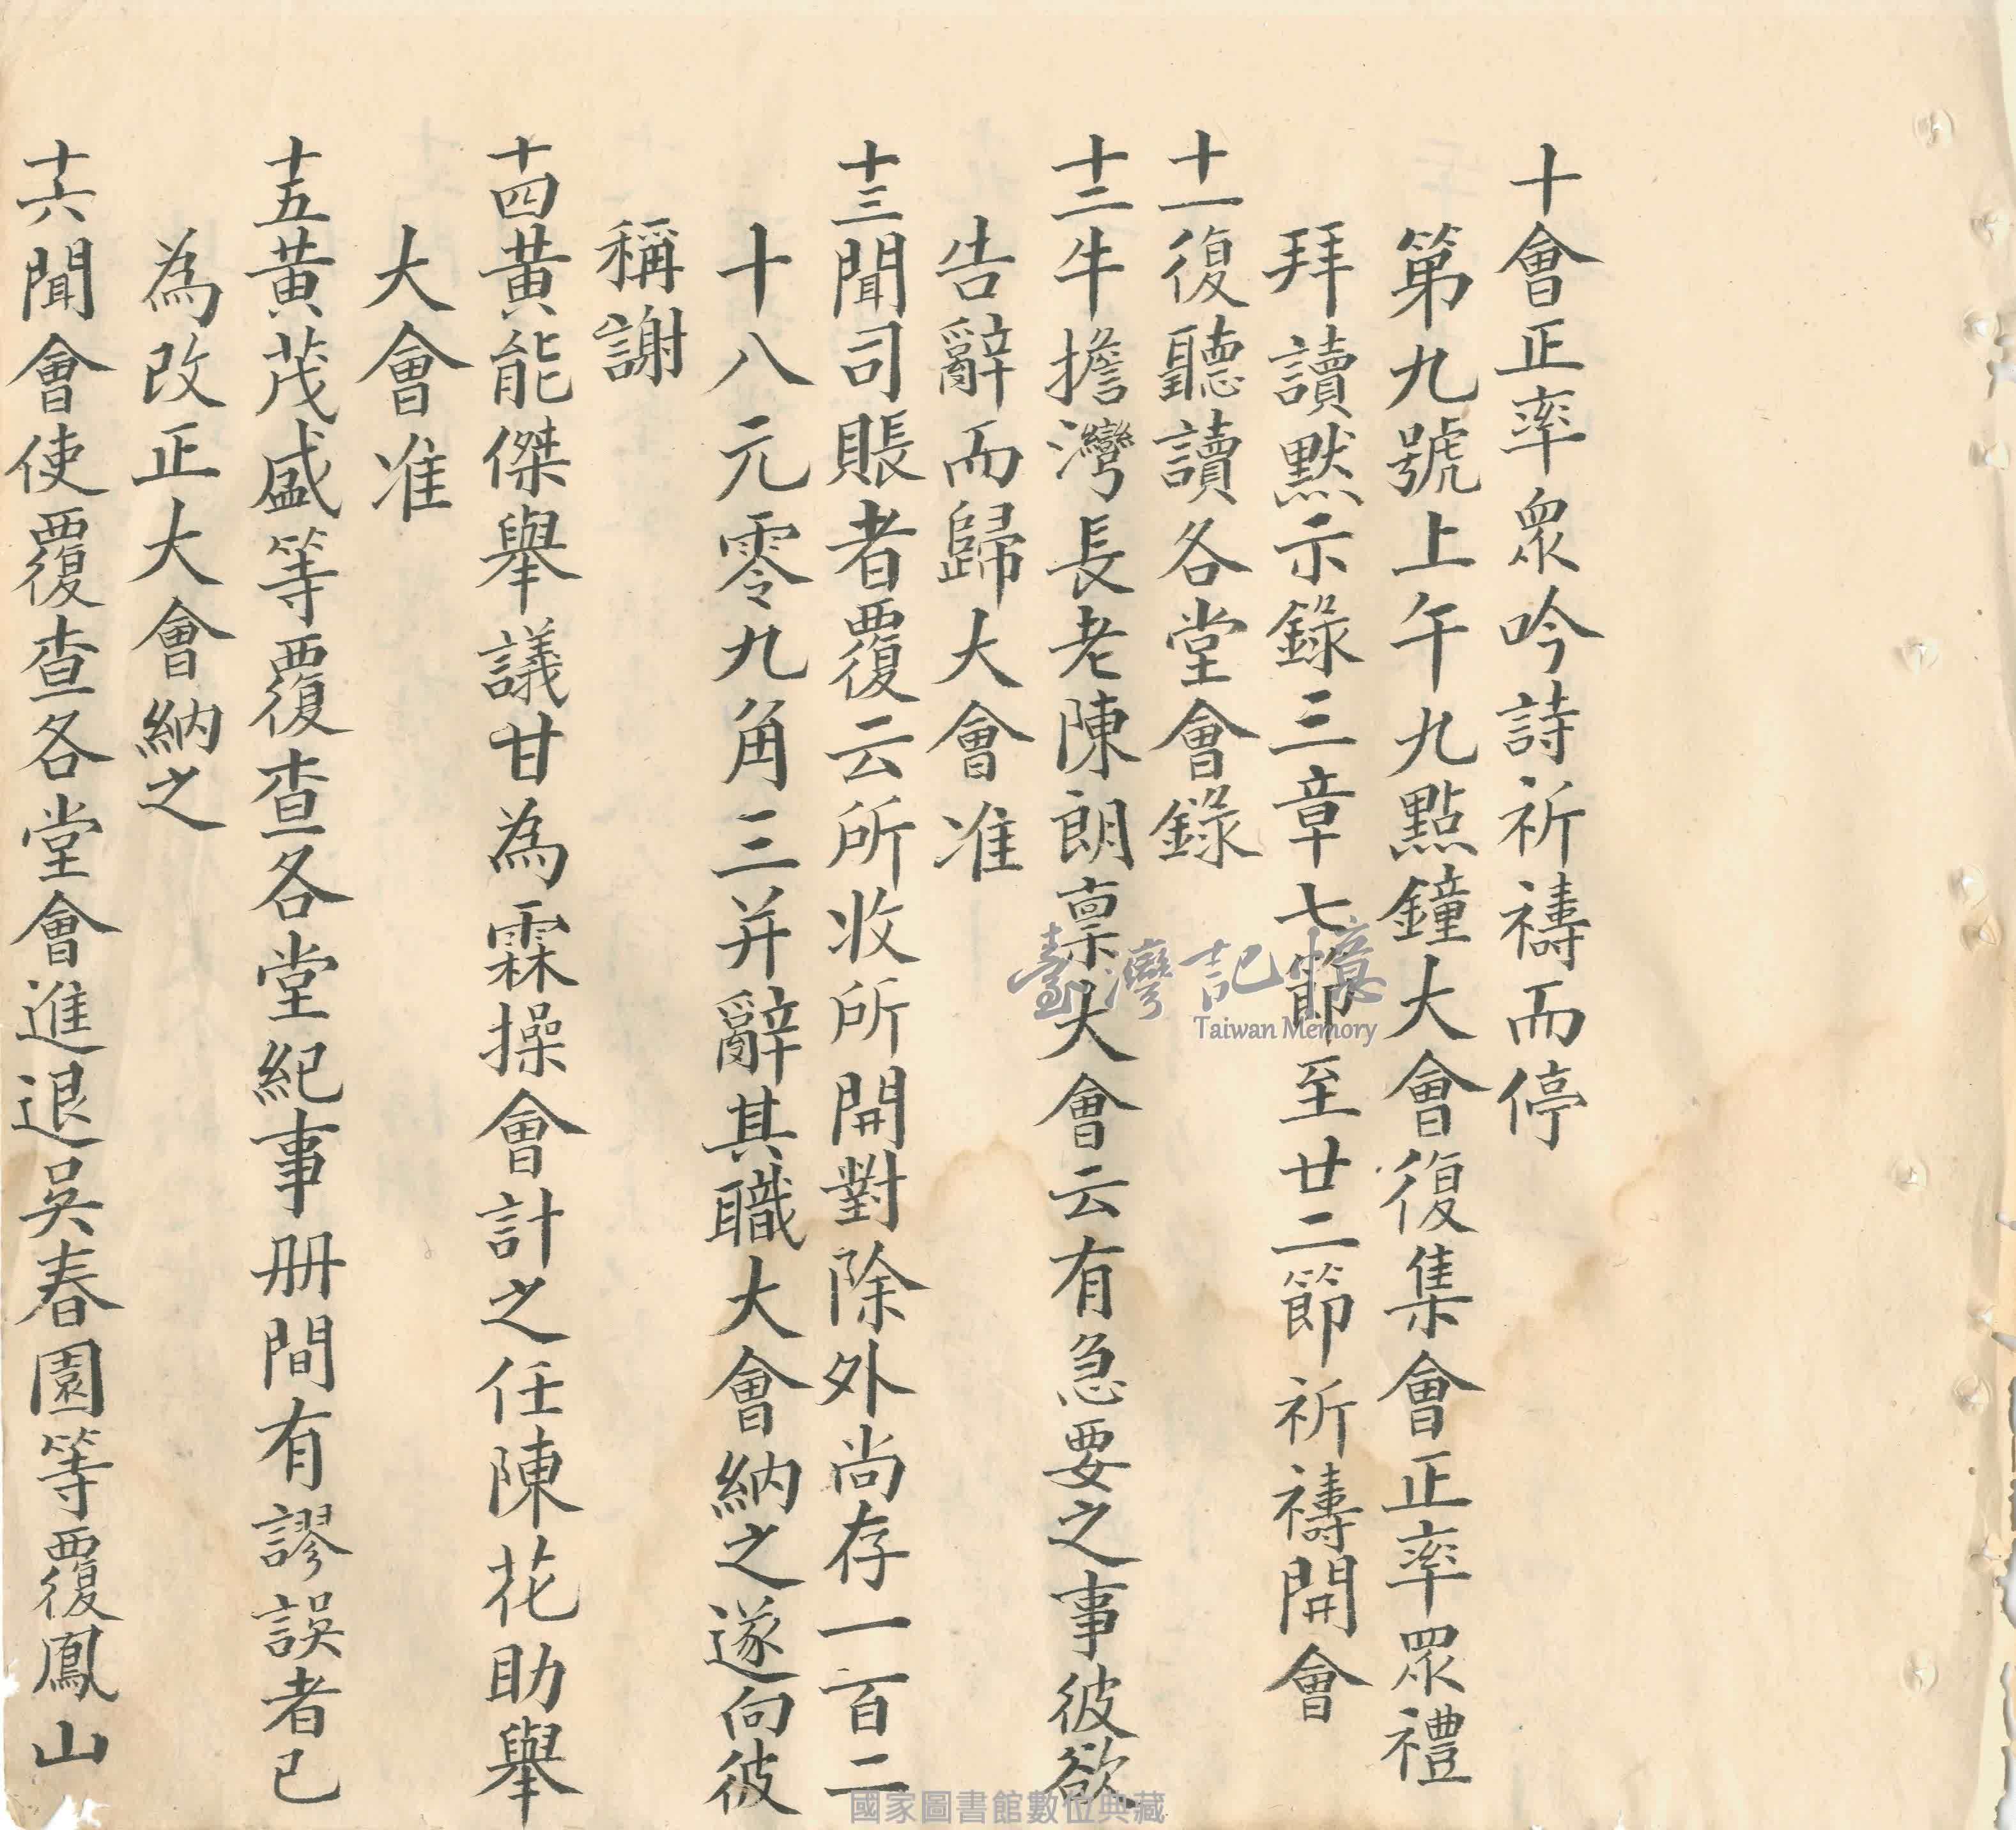 十會正率衆吟詩祈禱而停
第九號上午九點鐘大會復集會正率眾禮
拜讀默示錄三章七節至廿二節祈禱開會
十一復聽讀各堂會錄
十二牛擔灣長老陳朗禀大會云有急要之事彼欲
告辭而歸大會准
十三聞司賬者覆云所收所開對除外尚存一百二
十八元零九角三并辭其職大會納之遂向彼
稱謝
十四黃能傑舉議甘為霖操會計之任陳花助舉
大會准
十五黃茂盛等覆查各堂紀事册間有謬誤者已
為改正大會納之
十六聞會使覆查各堂會進退吳春園等覆鳳山
臺灣記憶
Taiwan Memory
國家圖書館數位典藏